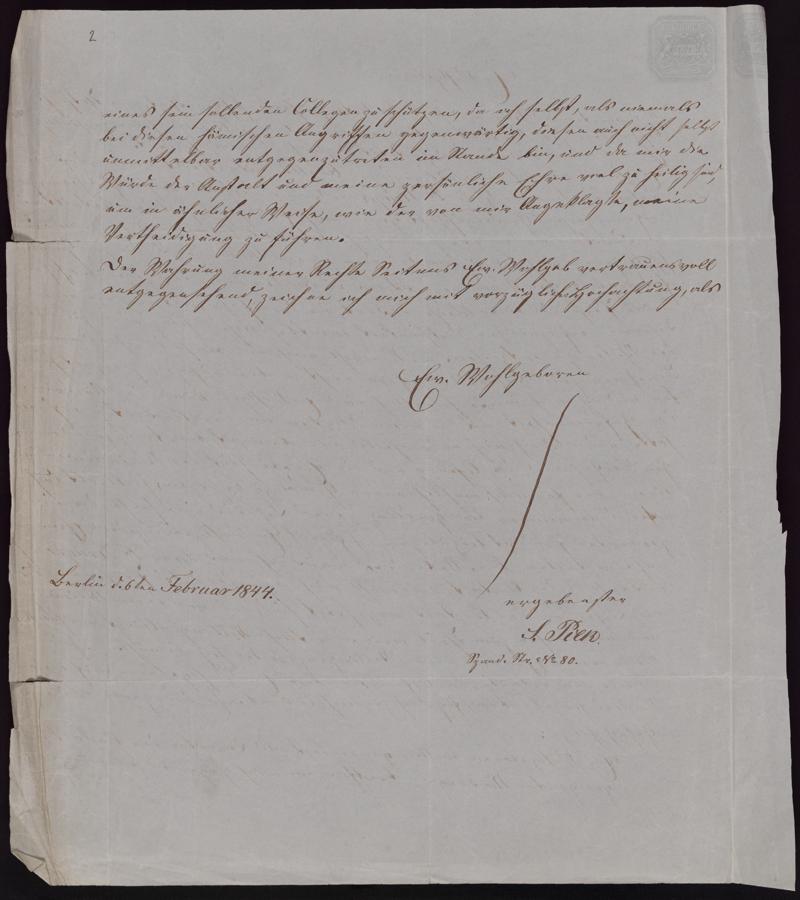 2
eines sein sollenden Collegen zu schützen, da ich selbst, als niemals
bei diesen hämischen Angriffen gegenwärtig, diesen auch nicht selbst
unmittelbar entgegenzutreten im Stande bin, und da mir die
Würde der Anstalt und meine persönliche Ehre viel zu heilig sind,
um in ähnlicher Weise, wie der von mir Angeklagte, meine
Vertheidigung zu führen.
Der Wahrung meiner Rechte Seitens Ew. Wohlgeb vertrauensvoll
entgegensehend, zeichne ich mich mit vorzüglicher Hochachtung, als
Ew. Wohlgeboren
Berlin d. 6ten Februar 1844.
ergebenster
S. Pick
Spand. Str. No 80.